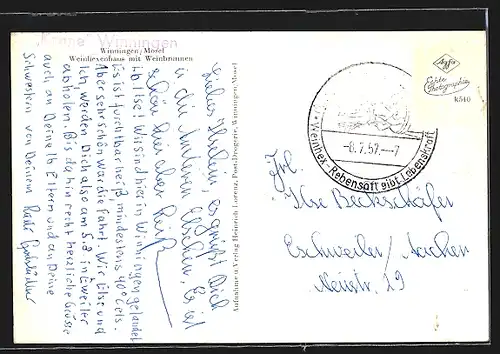 "Krone" Winningen
Winningen/Mosel
Weinhexenhaus mit Weinbrunnen
Agfa
Echte
Photographie
K510
Weinhex - Rebensaft gibt Lebenskraft
-8.7.57.--7
Aufnahme u. Verlag Heinrich Lorenz, Post-Drogerie, Winningen, Mosel
es grüßt Dich
in die
Es ist
Wir sind hier in Winningen gelandet
Es ist furchtbar heiß, mindestens 40° Cels.
Aber sehr schön war die Fahrt. Wir, Else und
ich, werden Dich also am 5.8. in
abholen. Bis dahin recht herzliche Grüsse
auch an Deine lb. Eltern und an Deine
Schwestern von Deinem
Frl.
Ilse Beckschäfer
Eschweiler/Aachen
Neustr. 29